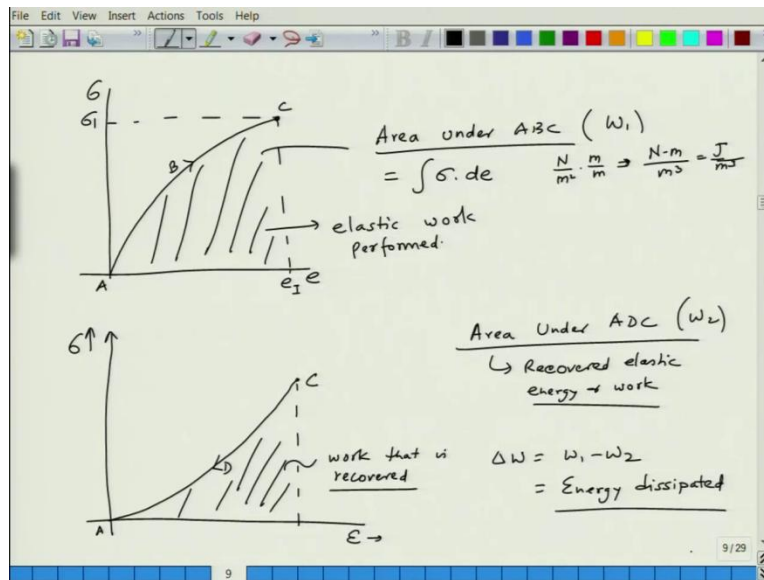 File Edit View Insert Actions Tools Help
B I
σ
σ1
C
B
A
eI e
Area under ABC (W1)
= ∫ σ. de
N/m² . m/m ⇒ N-m/m³ = J/m³
elastic work
performed.
σ↑
C
D
A
ε →
work that is
recovered
Area Under ADC (W2)
↳ Recovered elastic
energy → work
ΔW = W1 - W2
= Energy dissipated
9/29
9